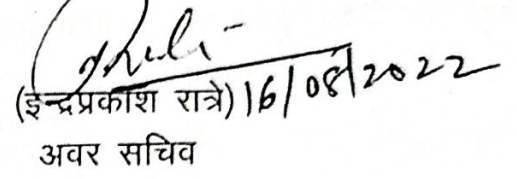 (इन्द्रप्रकाश रात्रे) 16/08/2022
अवर सचिव